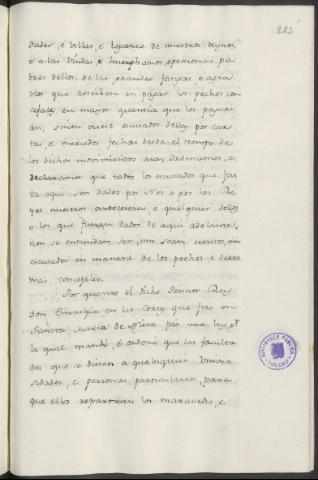 223
dades, é villas, é lugares de nuestros Reynos,
é a las Viudas, é huerphanos, é personas po-
bres dellos, de las grandes fatigas é agra-
vios que reciben en pagar los pechos con-
cejales en mayor quantia que los pagari-
an, sinon oviese escusados dellos por car-
tas, é mercedes fechas desde el tiempo de
los dichos movimientos acá: Ordenamos, é
declaramos que todos los escusados que fas-
ta aqui son dados por Nos o por los Re-
yes nuestros antecesores, o qualquier dellos
o los que fueren dados de aqui adelante,
non se entiendan ser, nin sean esentos, nin
escusados en manera de los pechos é derra-
mas concejales.
Por quanto el dicho Sennor Rey
don Enrrique en las Cortes que fizo en
Santa Maria de Nieva fizo una ley, pr.
la qual mandó, é ordenó que las facultades
que se dieron a qualesquier Univer-
sidades, é personas particulares, para
que ellos repartiesen los maravedis, é
BIBLIOTECA PUBLICA
TOLEDO